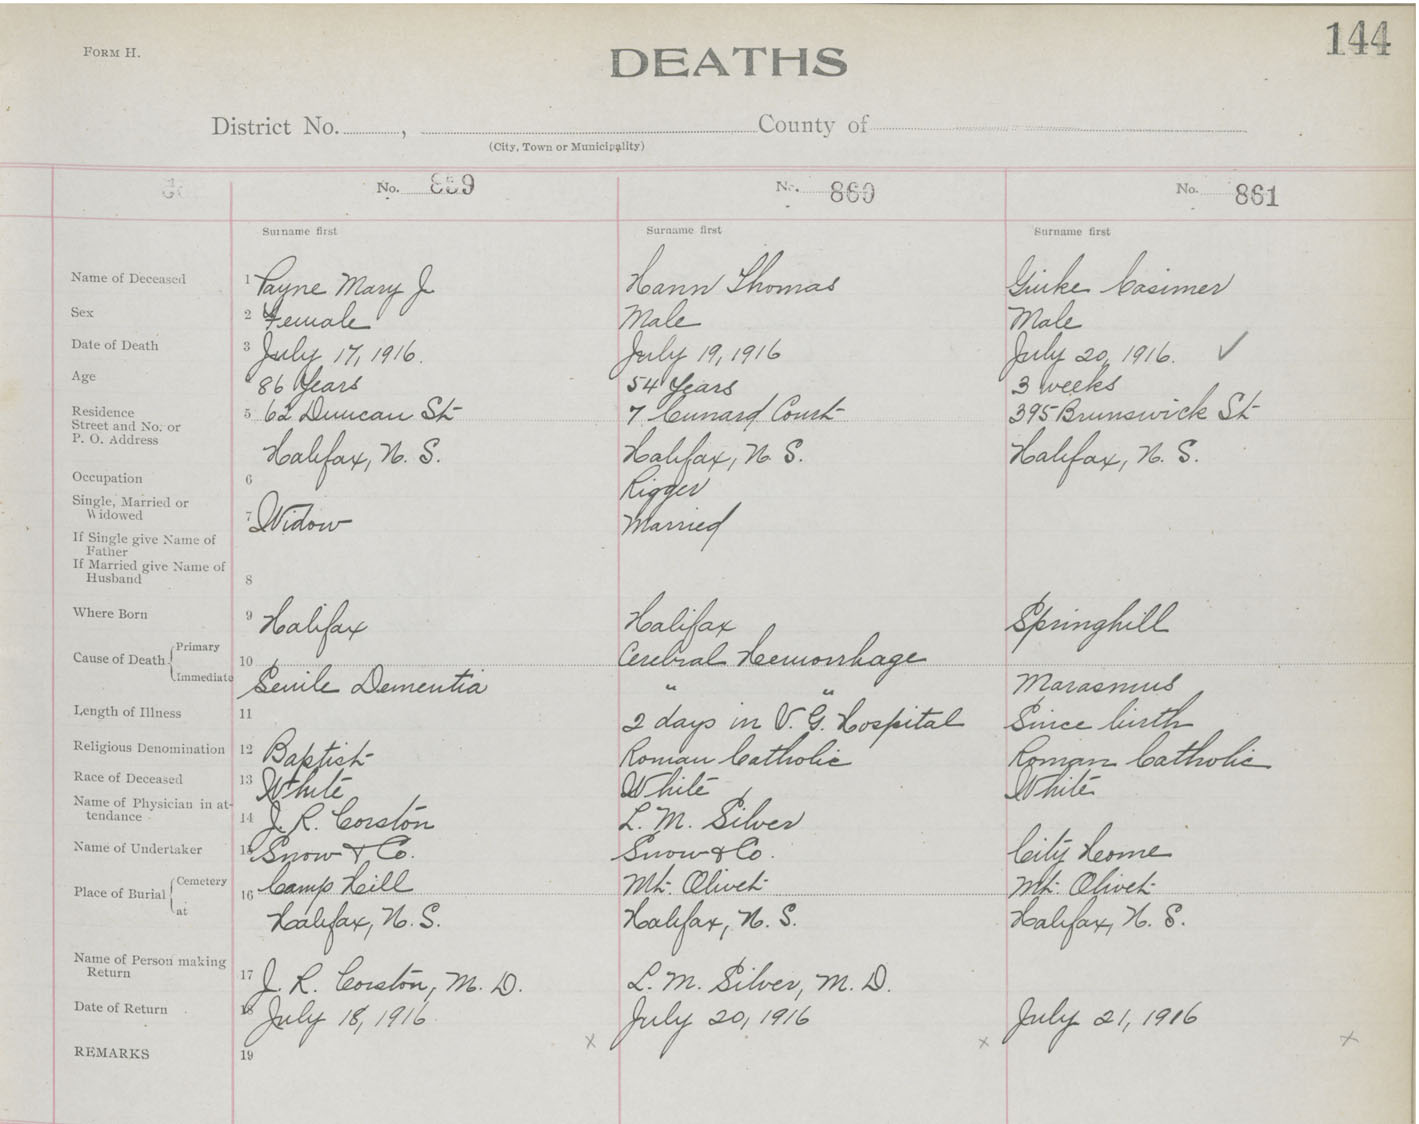 144
FORM H.
DEATHS
District No. , County of
(City, Town or Municipality)
No. 859 No. 860 No. 861
Surname first Surname first Surname first
Name of Deceased 1 Payne Mary J Hann Thomas Guike Casimer
Sex 2 Female Male Male
Date of Death 3 July 17, 1916. July 19, 1916 July 20, 1916. ✓
Age 4 86 Years 54 Years 3 weeks
Residence 5 62 Duncan St 7 Cunard Court 395 Brunswick St
Street and No. or
P. O. Address Halifax, N. S. Halifax, N S. Halifax, N. S.
Occupation 6 Rigger
Single, Married or
Widowed 7 Widow Married
If Single give Name of
Father
If Married give Name of
Husband 8
Where Born 9 Halifax Halifax Springhill
Primary Cerebral Hemorrhage
Cause of Death 10
Immediate Senile Dementia " " Marasmus
Length of Illness 11 2 days in V. G. Hospital Since birth
Religious Denomination 12 Baptist Roman Catholic Roman Catholic
Race of Deceased 13 White White White
Name of Physician in at-
tendance 14 J. R. Corston L. M. Silver
Name of Undertaker 15 Snow & Co. Snow & Co. City Home
Cemetery Camp Hill Mt. Olivet Mt. Olivet
Place of Burial 16
at Halifax, N. S. Halifax, N. S. Halifax, N. S.
Name of Person making
Return 17 J. R. Corston, M. D. L. M. Silver, M. D.
Date of Return 18 July 18, 1916 July 20, 1916 July 21, 1916
REMARKS 19 x x x